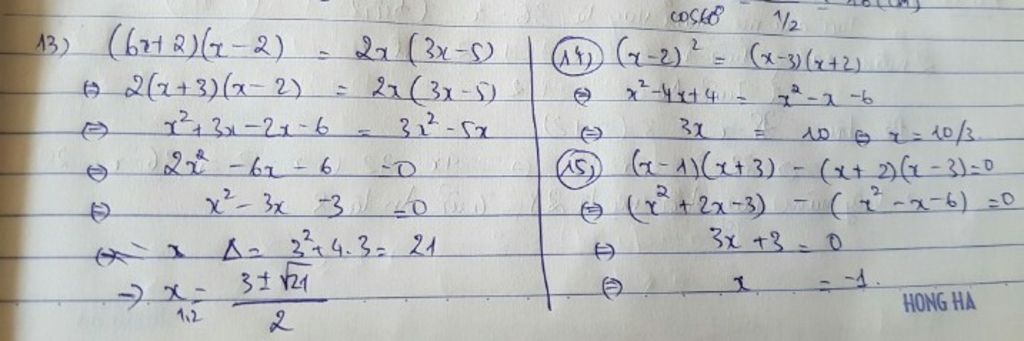 cos60° 1/2
13) (6x+2)(x-2) = 2x(3x-5)
⇔ 2(x+3)(x-2) = 2x(3x-5)
⇔ x²+3x-2x-6 = 3x²-5x
⇔ 2x² -6x -6 =0
⇔ x²-3x -3 =0
x Δ= 3²+4.3= 21
→ x₁,₂ = (3±√21)/2
14) (x-2)² = (x-3)(x+2)
⇔ x²-4x+4 = x²-x-6
⇔ 3x = 10 ⇔ x=10/3
15) (x-1)(x+3) - (x+2)(x-3)=0
⇔ (x²+2x-3) - (x²-x-6) =0
⇔ 3x+3=0
⇔ x = -1.
HONG HA